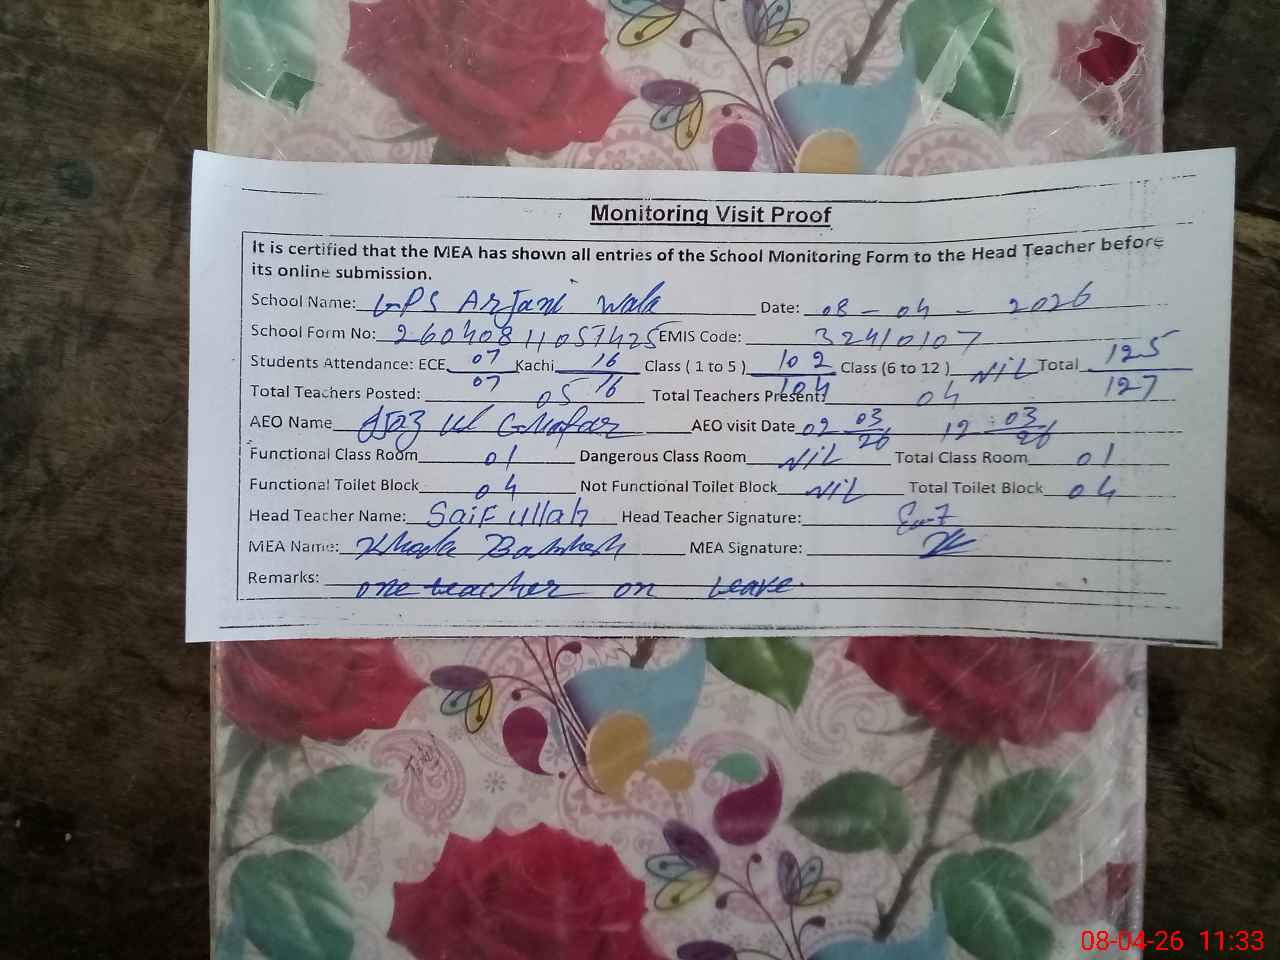 Monitoring Visit Proof
It is certified that the MEA has shown all entries of the School Monitoring Form to the Head Teacher before
its online submission.
School Name: GPS Arjani Wala Date: 08 - 04 - 2026
School Form No: 26040811057425 EMIS Code: 32410107
Students Attendance: ECE 07/07 Kachi 16/16 Class ( 1 to 5 ) 102/104 Class (6 to 12 ) NIL Total 125/127
Total Teachers Posted: 05 Total Teachers Present: 04
AEO Name Ajaz ul Ghafar AEO visit Date 02 03/26 12 03/26
Functional Class Room 01 Dangerous Class Room NIL Total Class Room 01
Functional Toilet Block 04 Not Functional Toilet Block NIL Total Toilet Block 04
Head Teacher Name: Saif ullah Head Teacher Signature:
MEA Name: Khuda Bakhsh MEA Signature:
Remarks: one teacher on leave.
08-04-26 11:33